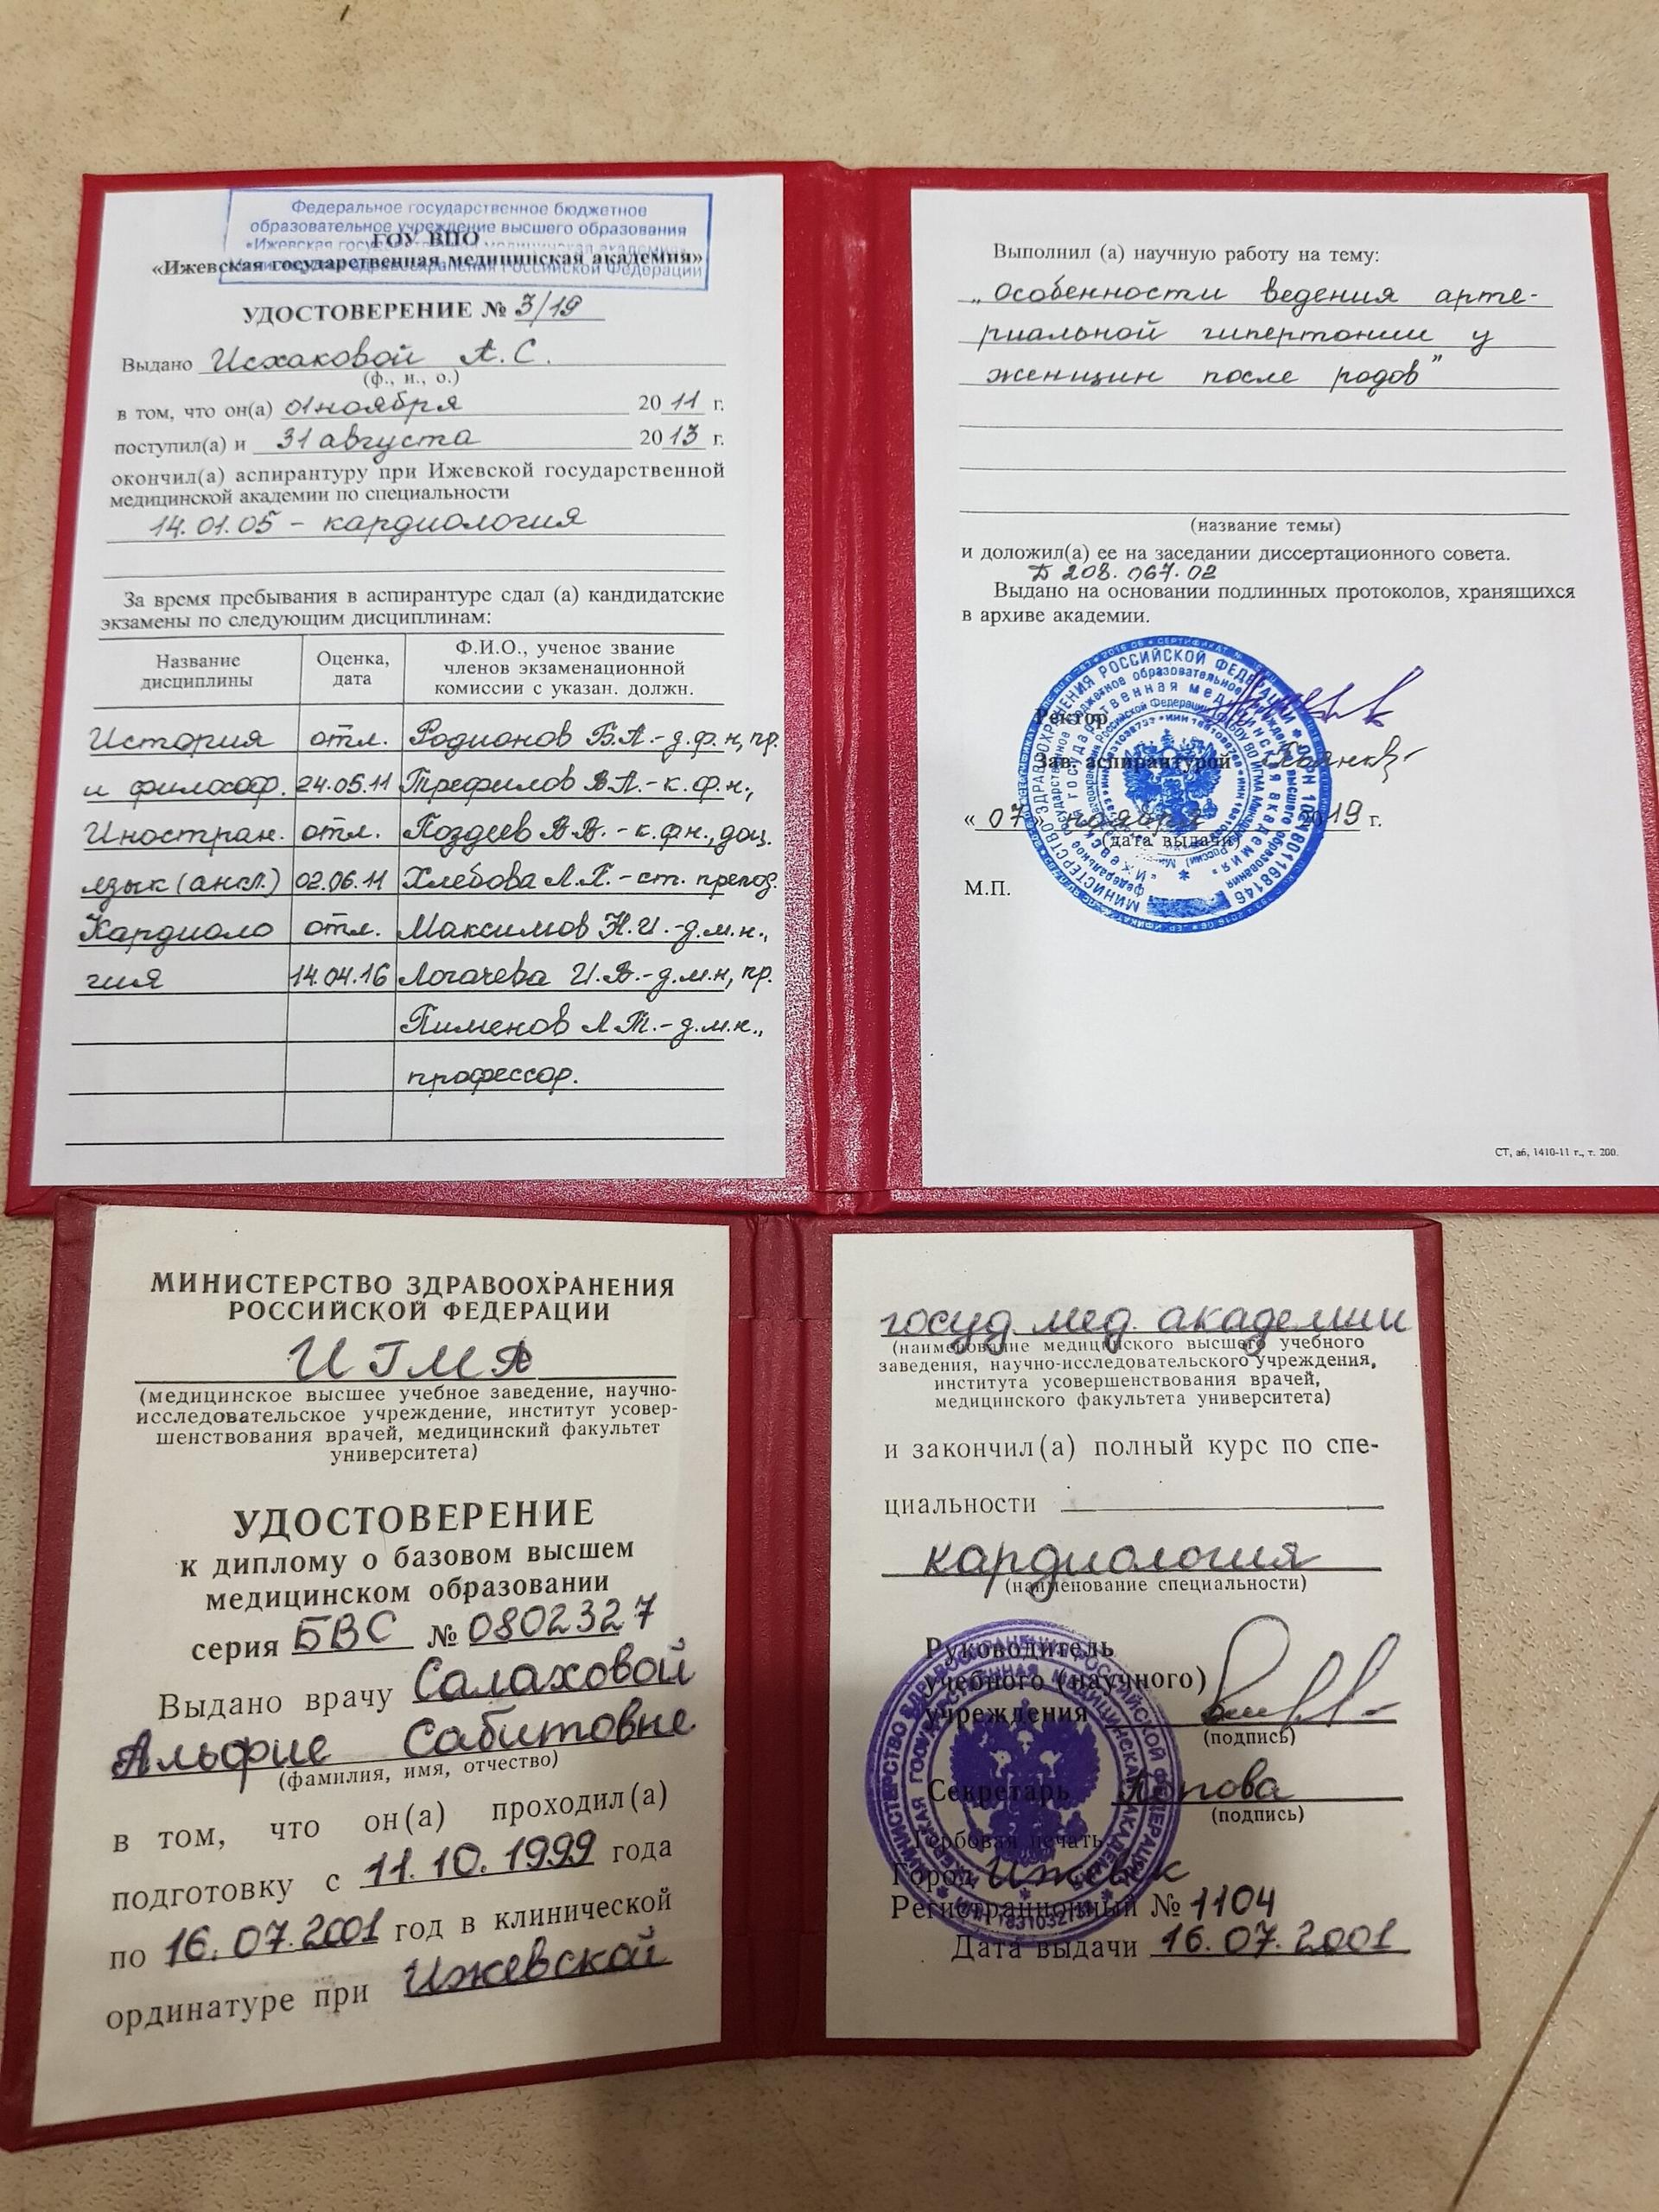 Федеральное государственное бюджетное
образовательное учреждение высшего образования
ГОУ ВПО
«Ижевская государственная медицинская академия»
УДОСТОВЕРЕНИЕ № 3/19
Выдано Исхаковой А.С.
(ф., и., о.)
в том, что он(а) 01 ноября 2011 г.
поступил(а) и 31 августа 2013 г.
окончил(а) аспирантуру при Ижевской государственной
медицинской академии по специальности
14.01.05 - кардиология
За время пребывания в аспирантуре сдал (а) кандидатские
экзамены по следующим дисциплинам:
Название дисциплины
Оценка, дата
Ф.И.О., ученое звание
членов экзаменационной
комиссии с указан. должн.
История отл. Родионов Б.А.-д.ф.н, пр.
и философ. 24.05.11 Трефилов В.А.-к.ф.н.,
Иностран. отл. Поздеев В.В.-к.ф.н., доц.
язык (англ.) 02.06.11 Хлебова Л.П.-ст. препод.
Кардиоло отл. Максимов Н.И.-д.м.н.,
гия 14.04.16 Логачева И.В.-д.м.н, пр.
Пименов Л.Т.-д.м.н.,
профессор.
Выполнил (а) научную работу на тему:
„Особенности ведения арте-
риальной гипертонии у
женщин после родов"
(название темы)
и доложил(а) ее на заседании диссертационного совета.
Д 208.067.02
Выдано на основании подлинных протоколов, хранящихся
в архиве академии.
Ректор
Зав. аспирантурой
« 07 » ноября 2019 г.
(дата выдачи)
М.П.
СТ, а6, 1410-11 г., т. 200.
МИНИСТЕРСТВО ЗДРАВООХРАНЕНИЯ
РОССИЙСКОЙ ФЕДЕРАЦИИ
ИГМА
(медицинское высшее учебное заведение, научно-
исследовательское учреждение, институт усовер-
шенствования врачей, медицинский факультет
университета)
УДОСТОВЕРЕНИЕ
к диплому о базовом высшем
медицинском образовании
серия БВС № 0802327
Выдано врачу Салаховой
Альфие Сабитовне
(фамилия, имя, отчество)
в том, что он(а) проходил(а)
подготовку с 11.10.1999 года
по 16.07.2001 год в клинической
ординатуре при Ижевской
госуд. мед. академии
(наименование медицинского высшего учебного
заведения, научно-исследовательского учреждения,
института усовершенствования врачей,
медицинского факультета университета)
и закончил(а) полный курс по спе-
циальности
кардиология
(наименование специальности)
Руководитель
учебного (научного)
учреждения
(подпись)
Секретарь Попова
(подпись)
Гербовая печать
Город Ижевск
Регистрационный № 1104
Дата выдачи 16.07.2001